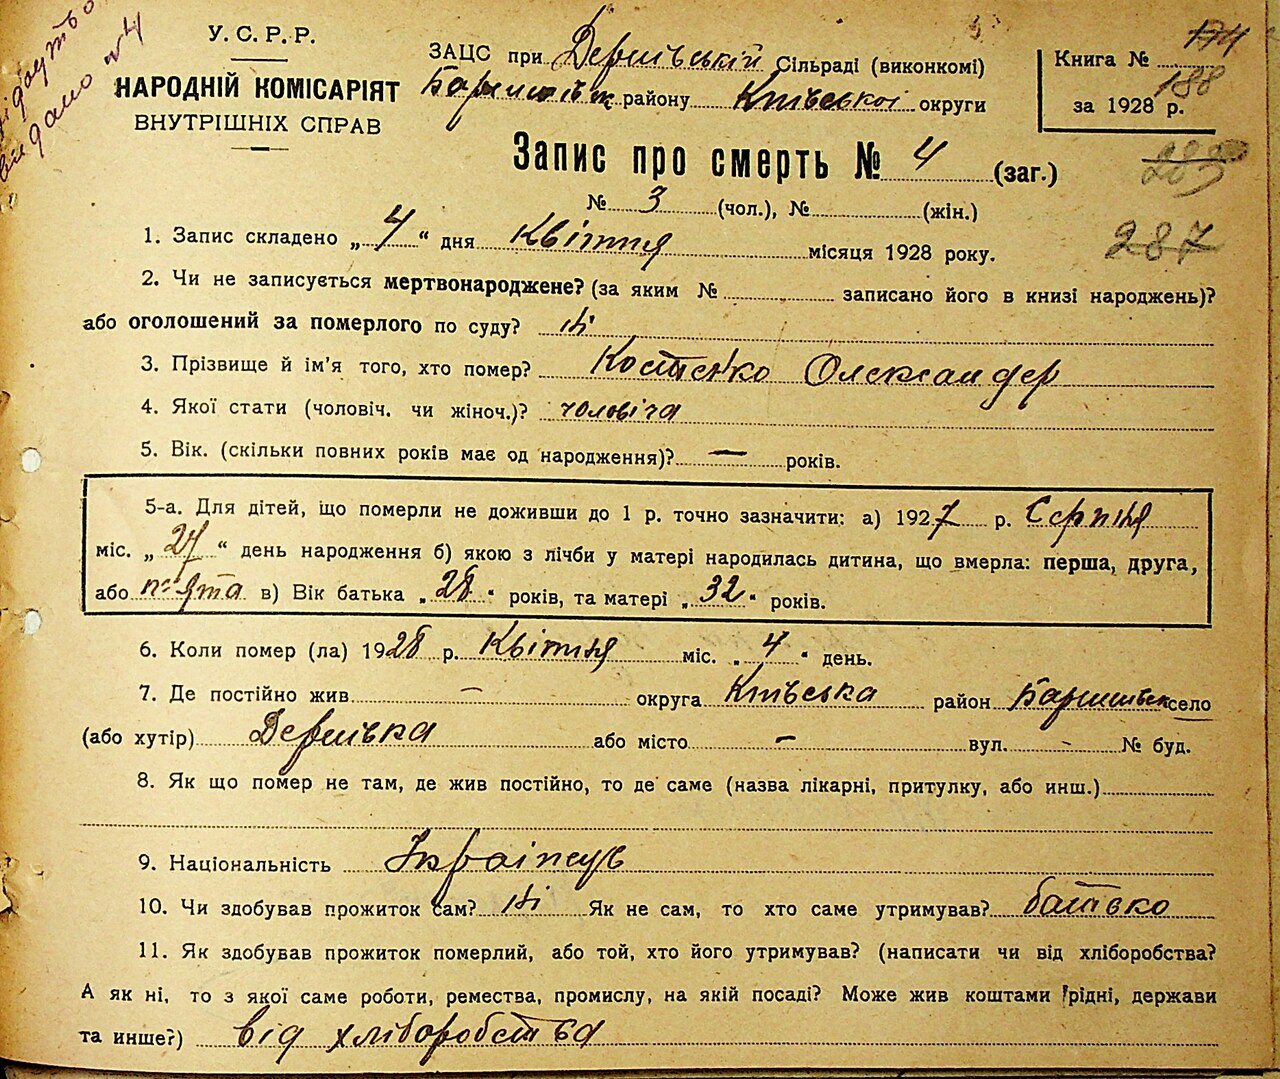 видано № 4
У. С. Р. Р.
НАРОДНІЙ КОМІСАРІЯТ
ВНУТРІШНІХ СПРАВ
ЗАЦС при Дернівській Сільраді (виконкомі)
району Київської округи
Книга № 174
188
за 1928 р.
Запис про смерть № 4 (заг.)
№ 3 (чол.), № (жін.)
287
1. Запис складено „ 4 “ дня Квітня місяця 1928 року.
2. Чи не записується мертвонароджене? (за яким № записано його в книзі народжень)?
або оголошений за померлого по суду? Ні
3. Прізвище й ім'я того, хто помер? Костенко Олександер
4. Якої стати (чоловіч. чи жіноч.)? чоловіча
5. Вік. (скільки повних років має од народження)? — років.
5-а. Для дітей, що померли не доживши до 1 р. точно зазначити: а) 1927 р. Серпня
міс. „ 27 “ день народження б) якою з лічби у матері народилась дитина, що вмерла: перша, друга,
або п'ята в) Вік батька „ 28 “ років, та матері „ 32 “ років.
6. Коли помер (ла) 1928 р. Квітня міс. „ 4 “ день.
7. Де постійно жив — округа Київська район село
(або хутір) Дернівка або місто — вул. - № буд.
8. Як що помер не там, де жив постійно, то де саме (назва лікарні, притулку, або инш.)
9. Національність Українець
10. Чи здобував прожиток сам? Ні Як не сам, то хто саме утримував? батько
11. Як здобував прожиток померлий, або той, хто його утримував? (написати чи від хліборобства?
А як ні, то з якої саме роботи, ремества, промислу, на якій посаді? Може жив коштами рідні, держави
та инше?) від хліборобства